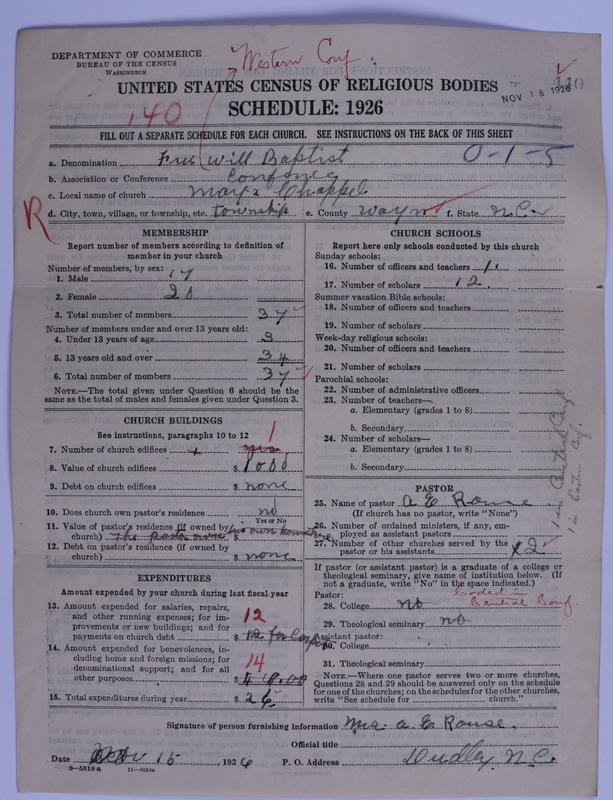 Western Conf.
DEPARTMENT OF COMMERCE
BUREAU OF THE CENSUS
WASHINGTON
440
NOV 18 1926
UNITED STATES CENSUS OF RELIGIOUS BODIES
140
SCHEDULE: 1926
FILL OUT A SEPARATE SCHEDULE FOR EACH CHURCH. SEE INSTRUCTIONS ON THE BACK OF THIS SHEET
a. Denomination Free Will Baptist 0-1-5
b. Association or Conference
c. Local name of church Mays Chappel
R d. City, town, village, or township, etc. township e. County Wayn f. State N.C.
MEMBERSHIP
Report number of members according to definition of member in your church
Number of members, by sex:
1. Male 17
2. Female 20
3. Total number of members 37
Number of members under and over 13 years old:
4. Under 13 years of age 3
5. 13 years old and over 34
6. Total number of members 37
NOTE.—The total given under Question 6 should be the same as the total of males and females given under Question 3.
CHURCH BUILDINGS
See instructions, paragraphs 10 to 12
7. Number of church edifices yes 1
8. Value of church edifices $ 1000
9. Debt on church edifices $ none
10. Does church own pastor's residence? no
Yes or No
11. Value of pastor's residence (if owned by church) $
12. Debt on pastor's residence (if owned by church) $ none
EXPENDITURES
Amount expended by your church during last fiscal year
13. Amount expended for salaries, repairs, and other running expenses; for improvements or new buildings; and for payments on church debt $ 12
14. Amount expended for benevolences, including home and foreign missions; for denominational support; and for all other purposes $ 14
15. Total expenditures during year $ 26
CHURCH SCHOOLS
Report here only schools conducted by this church
Sunday schools:
16. Number of officers and teachers
17. Number of scholars 12
Summer vacation Bible schools:
18. Number of officers and teachers
19. Number of scholars
Week-day religious schools:
20. Number of officers and teachers
21. Number of scholars
Parochial schools:
22. Number of administrative officers
23. Number of teachers—
a. Elementary (grades 1 to 8)
b. Secondary
24. Number of scholars—
a. Elementary (grades 1 to 8)
b. Secondary
1 in Central Conf.
1 in Eastern Cf.
PASTOR
25. Name of pastor A E Rouse
(If church has no pastor, write "None")
26. Number of ordained ministers, if any, employed as assistant pastors
27. Number of other churches served by the pastor or his assistants 2
If pastor (or assistant pastor) is a graduate of a college or theological seminary, give name of institution below. (If not a graduate, write "No" in the space indicated.)
Pastor: Coded in Central Conf
28. College No
29. Theological seminary no
Assistant pastor:
30. College
31. Theological seminary
NOTE.—Where one pastor serves two or more churches, Questions 28 and 29 should be answered only on the schedule for one of the churches; on the schedules for the other churches, write "See schedule for church."
Signature of person furnishing information Mrs. A. E. Rouse.
Official title
Date Nov 15, 1926 P. O. Address Dudley, N.C.
8-5518a 11-9054a